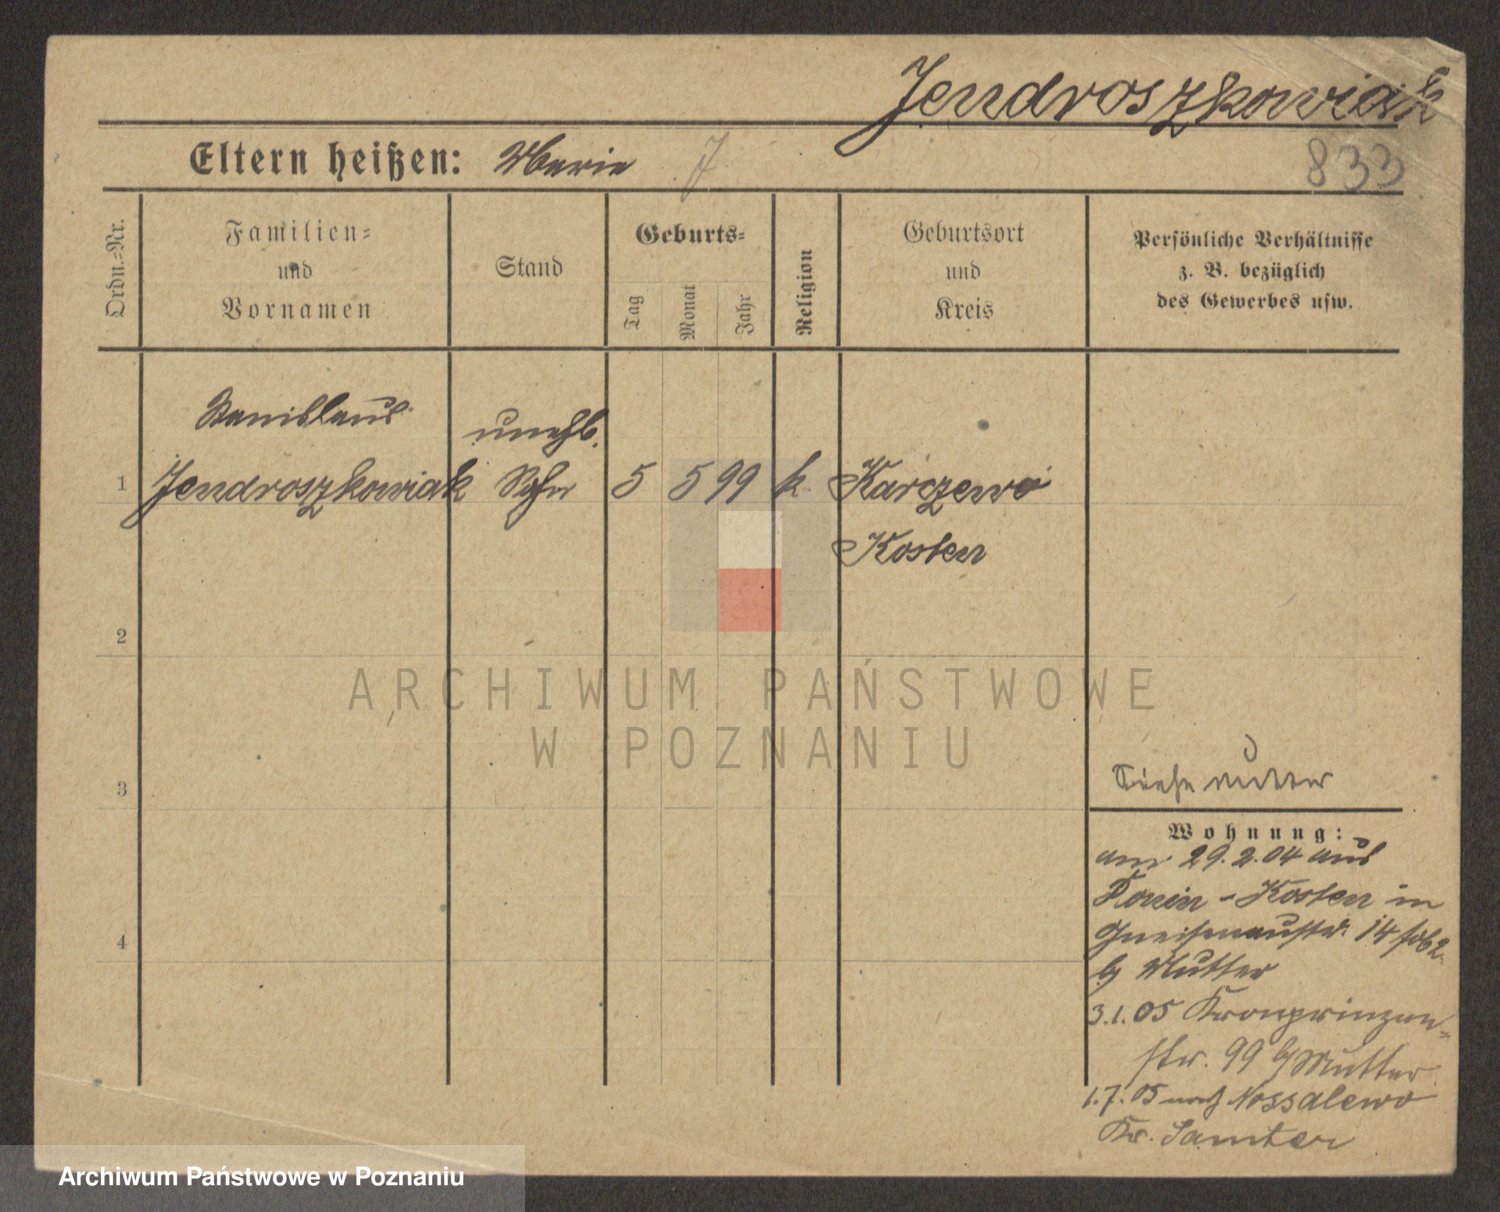 Jendroszkowiak
Eltern heißen: Marie J
833
Ordn.-Nr.
Familien-
und
Vornamen
Stand
Geburts-
Tag
Monat
Jahr
Religion
Geburtsort
und
Kreis
Persönliche Verhältnisse
z. B. bezüglich
des Gewerbes usw.
Stanislaus
unehl.
1 Jendroszkowiak Sohn 5 5 99 k Karczewo
Kosten
2
3
4
Siehe Mutter
Wohnung:
am 29.2.04 aus
Konin - Kosten in
Gneisenaustr. 14
b/ Mutter
3.1.05 Kronprinzen-
str. 99 b/ Mutter
1.7.05 nach Nossalewo
Kr. Samter
ARCHIWUM PAŃSTWOWE
W POZNANIU
Archiwum Państwowe w Poznaniu